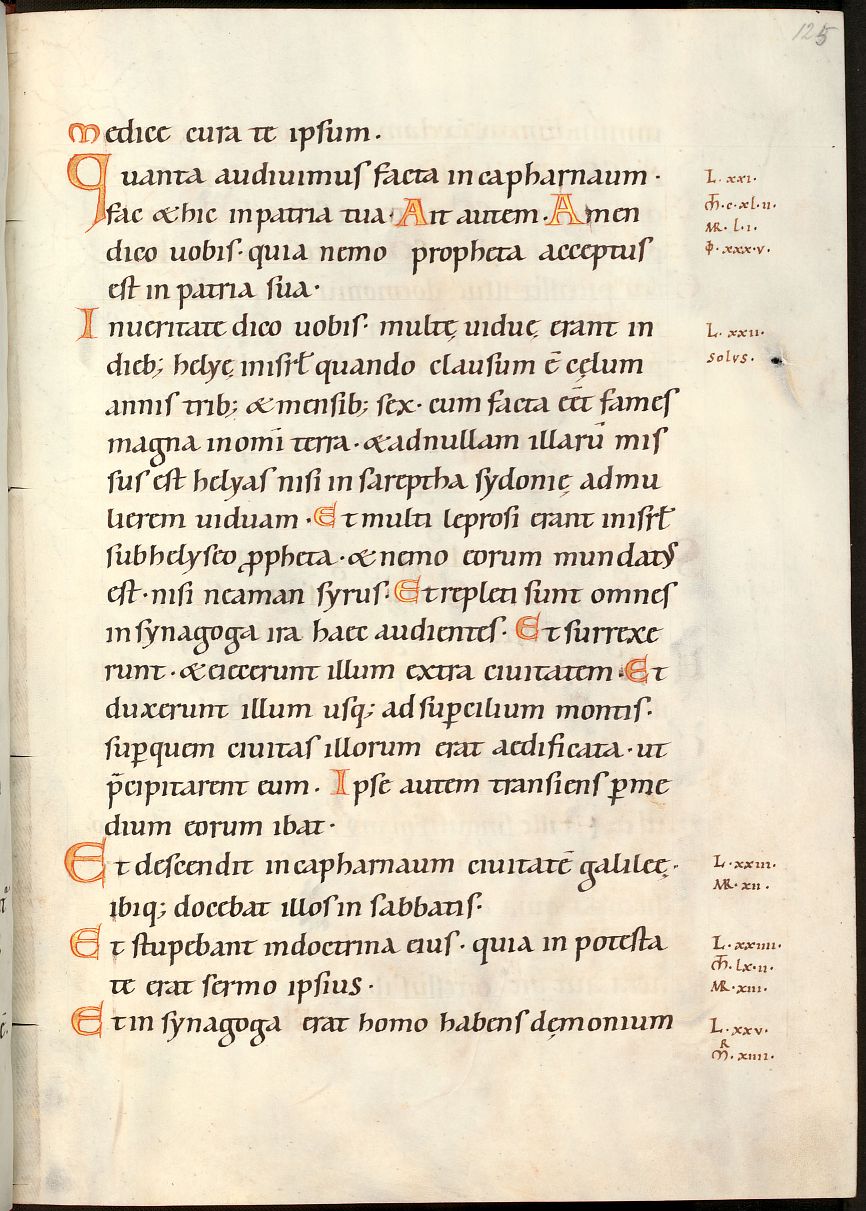 125
Medice cura te ipsum.
Quanta audiuimus facta in capharnaum·
fac & hic in patria tua· Ait autem· Amen
dico uobis· quia nemo propheta acceptus
est in patria sua·
In ueritate dico uobis· multę uiduę erant in
dieb; helyę in isrł quando clausum ē cęlum
annis trib; & mensib; sex· cum facta eēt fames
magna in omī terra· & ad nullam illarū mis
sus est helyas nisi in sareptha sydonię ad mu
lierem uiduam· Et multi leprosi erant in isrł
sub helyseo ꝓpheta· & nemo eorum mundatꝰ
est· nisi neaman syrus· Et repleti sunt omnes
in synagoga ira haec audientes· Et surrexe
runt· & eiecerunt illum extra ciuitatem· Et
duxerunt illum usq; ad suꝑcilium montis·
suꝑ quem ciuitas illorum erat aedificata· ut
p̄cipitarent eum· Ipse autem transiens ꝑ me
dium eorum ibat·
Et descendit in capharnaum ciuitatē galileę·
ibiq; docebat illos in sabbatis·
Et stupebant in doctrina eius· quia in potesta
te erat sermo ipsius·
Et in synagoga erat homo habens dęmonium
L· xxi·
M̄· c· xl· ii·
MR· l· i·
Φ· xxx· v·
L· xxii·
solus·
L· xxiii·
MR· xii·
L· xxiiii·
M̄· lx· ii·
MR· xiii·
L· xxv·
R
M· xiiii·